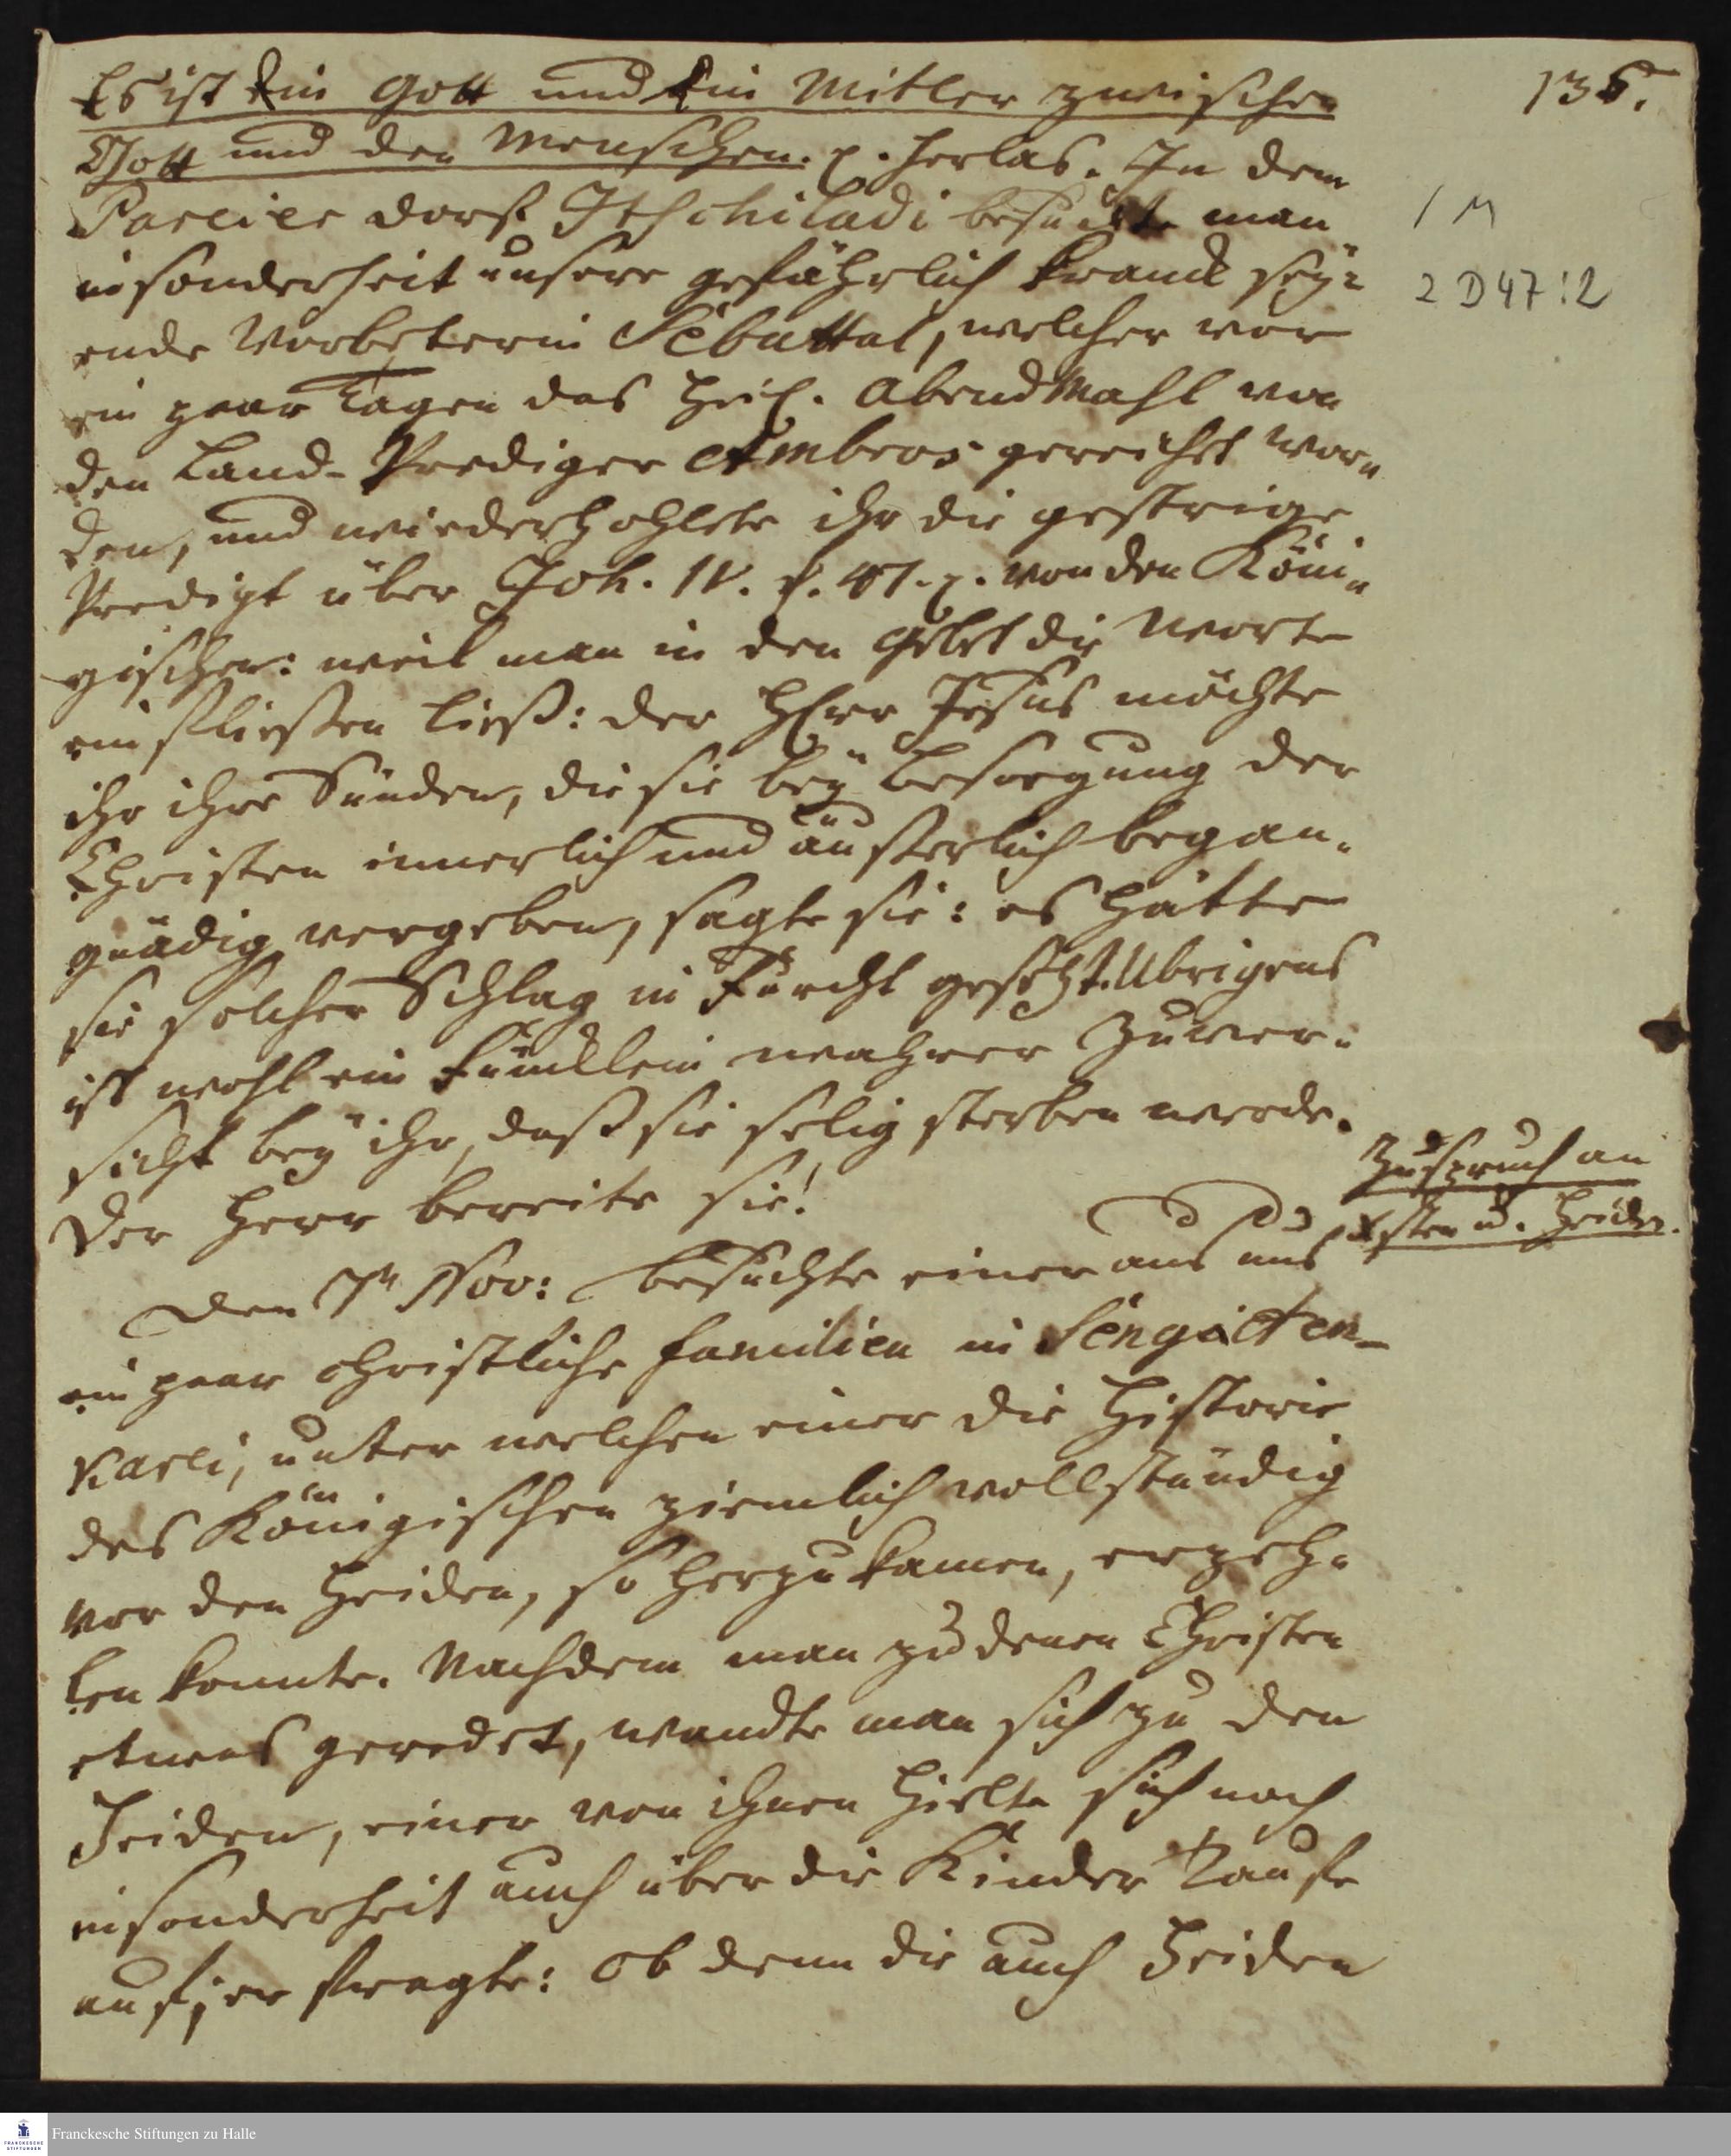 135.
Es ist Ein Gott und Ein Mitler zwischen
Gott und den Menschen. p. herlas. In dem
Pareier dorf Itschiladi besuchte man
insonderheit unsere gefährlich kranck sey-
ende Vorbeterin Sebattal, welcher vor
ein paar Tagen das heil. AbendMahl von
den Land-Prediger Ambros gereichet wor-
den, und wiederhohlete ihr die gestrige
Predigt über Joh. IV. v. 47. p. von den Köni-
gischen: weil man in den Gebet die Worte
einfliessen ließ: der HErr Jesus möchte
ihr ihre Sünden, die sie bey Besorgung der
Christen innerlich und äusserlich began-
gnädig vergeben, sagte sie: es hätte
sie solcher Schlag in Furcht gesetzt. Ubrigens
ist wohl ein Füncklein wahrer Zuver-
sicht bey ihr, daß sie selig sterben werde.
Der Herr bereite sie!
Den 7n Nov: besuchte einer aus uns
ein paar christliche Familien in Sengâtten-
karei, unter welchen einer die Historie
des Königischen ziemlich vollständig
vor den Heiden, so herzu kamen, erzeh-
len konnte. Nachdem man zu denen Christen
etwas geredet, wandte man sich zu den
Heiden, einer von ihnen hielte sich noch
insonderheit auch über die Kinder Taufe
auf; er fragte: Ob denn die auch Heiden
1 M
2 D47:2
Zuspruch an
Xsten u. Heiden.
Franckesche Stiftungen zu Halle
FRANCKESCHE
STIFTUNGEN